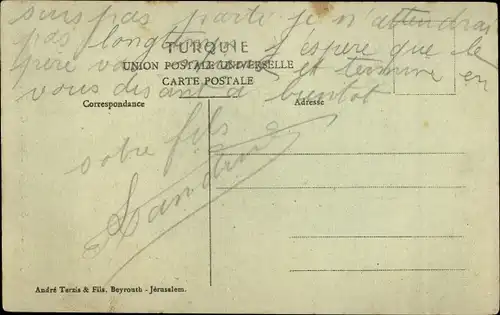 suis pas parti je n'attendrai
pas longtemps j'espère que le
TURQUIE
père va
UNION POSTALE UNIVERSELLE
et termine en
CARTE POSTALE
vous disant a bientot
Correspondance
Adresse
votre fils
André Terzis & Fils, Beyrouth - Jérusalem.